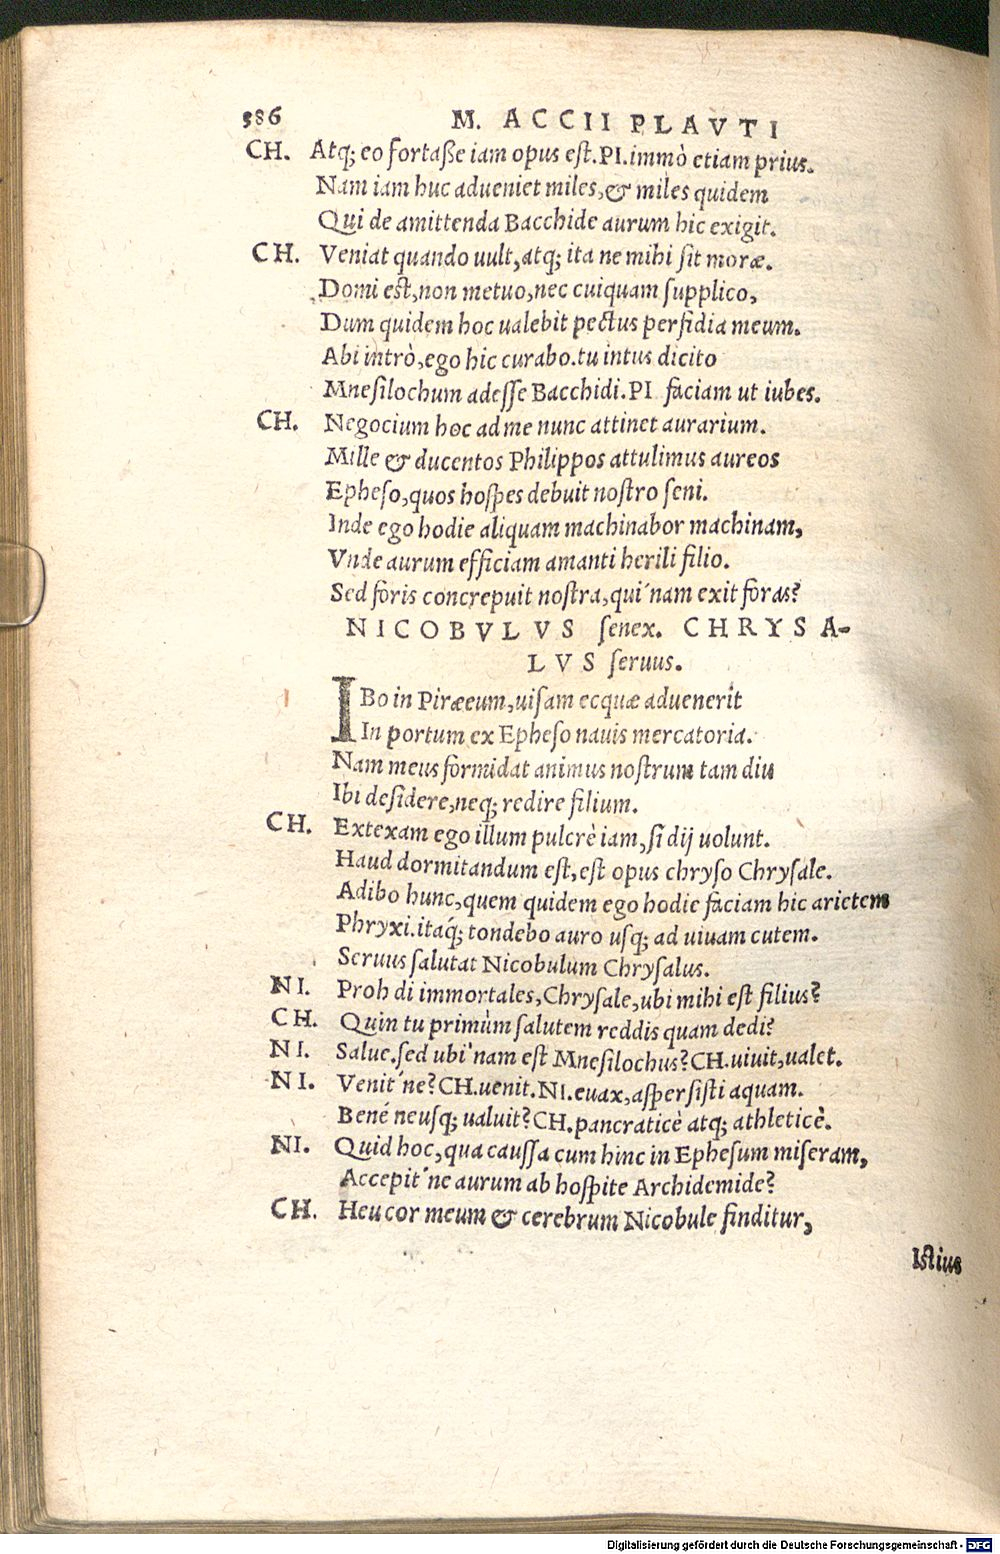 386 M. ACCII PLAVTI
CH. Atq; eo fortaße iam opus est. PI. immò etiam prius.
Nam iam huc adueniet miles, & miles quidem
Qui de amittenda Bacchide aurum hic exigit.
CH. Veniat quando uult, atq; ita ne mihi sit moræ.
Domi est, non metuo, nec cuiquam supplico,
Dum quidem hoc ualebit pectus perfidia meum.
Abi intrò, ego hic curabo. tu intus dicito
Mnesilochum adesse Bacchidi. PI faciam ut iubes.
CH. Negocium hoc ad me nunc attinet aurarium.
Mille & ducentos Philippos attulimus aureos
Epheso, quos hospes debuit nostro seni.
Inde ego hodie aliquam machinabor machinam,
Vnde aurum efficiam amanti herili filio.
Sed foris concrepuit nostra, qui'nam exit foras?
NICOBVLVS senex. CHRYSA-
LVS seruus.
IBo in Piræeum, uisam ecquæ aduenerit
In portum ex Epheso nauis mercatoria.
Nam meus formidat animus nostrum tam diu
Ibi desidere, neq; redire filium.
CH. Extexam ego illum pulcrè iam, si dij uolunt.
Haud dormitandum est, est opus chryso Chrysale.
Adibo hunc, quem quidem ego hodie faciam hic arietem
Phryxi. itáq; tondebo auro usq; ad uiuam cutem.
Seruus salutat Nicobulum Chrysalus.
NI. Proh di immortales, Chrysale, ubi mihi est filius?
CH. Quin tu primùm salutem reddis quam dedi?
NI. Salue. sed ubi'nam est Mnesilochus? CH. uiuit, ualet.
NI. Venit'ne? CH. uenit. NI. euax, aspersisti aquam.
Bené neusq; ualuit? CH. pancraticè atq; athleticè.
NI. Quid hoc, qua caussa cum hinc in Ephesum miseram,
Accepit'ne aurum ab hospite Archidemide?
CH. Heu cor meum & cerebrum Nicobule finditur,
Istius
Digitalisierung gefördert durch die Deutsche Forschungsgemeinschaft - DFG